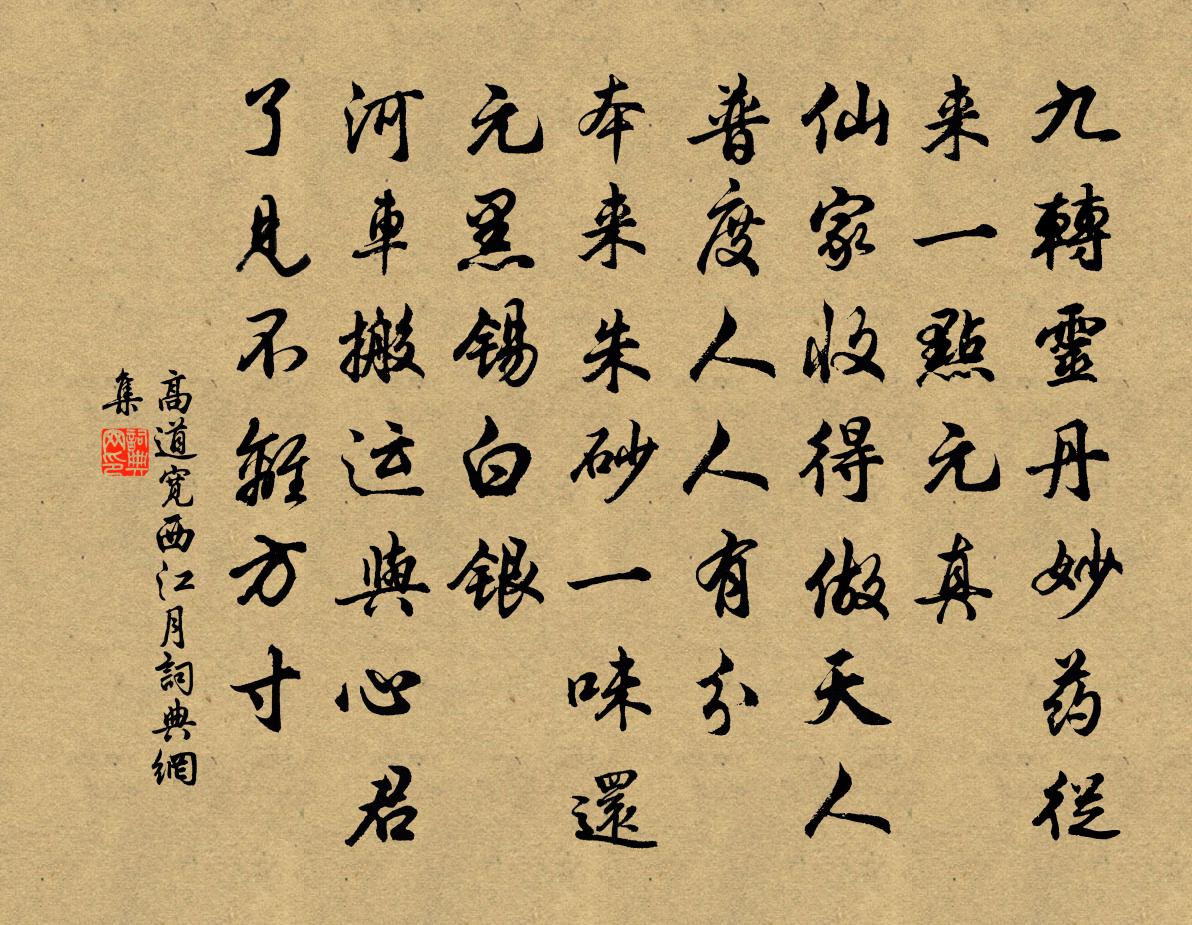 九轉靈丹妙药從
来一點元真
仙家收得做天人
普度人人有分
本来朱砂一味還
元黑锡白银
河車搬运與心君
了見不離方寸
高道寬西江月詞典網
集
詞典网印